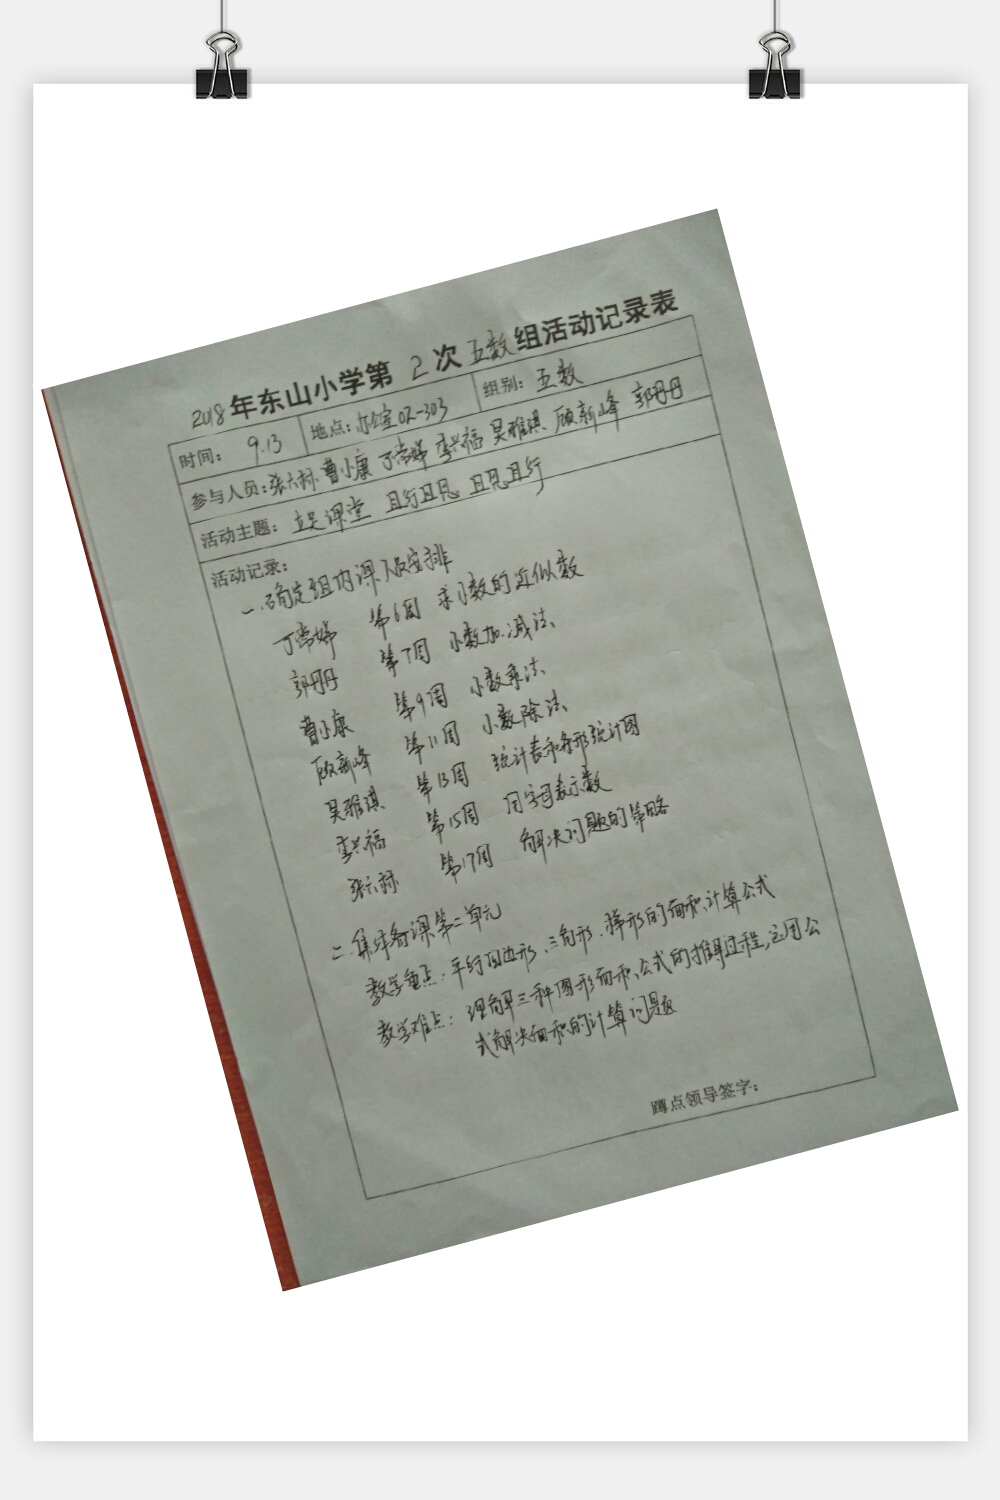 2018年东山小学第 2 次五数组活动记录表
时间： 9.13 地点：办公室02-303 组别：五数
参与人员：张六林 曹小康 丁常娣 李兴福 吴雅琪 顾新峰 郭丹丹
活动主题： 立足课堂 且行且思 且思且行
活动记录：
一.确定组内课人员安排
丁常娣 第6周 求小数的近似数
郭丹丹 第7周 小数加.减法、
曹小康 第9周 小数乘法、
顾新峰 第11周 小数除法、
吴雅琪 第13周 统计表和条形统计图
李兴福 第15周 用字母表示数
张六林 第17周 解决问题的策略
二.集体备课第二单元
教学重点：平行四边形、三角形、梯形的面积、计算公式
教学难点：理解三种图形面积、公式的推导过程,运用公
式解决面积的计算问题
蹲点领导签字：